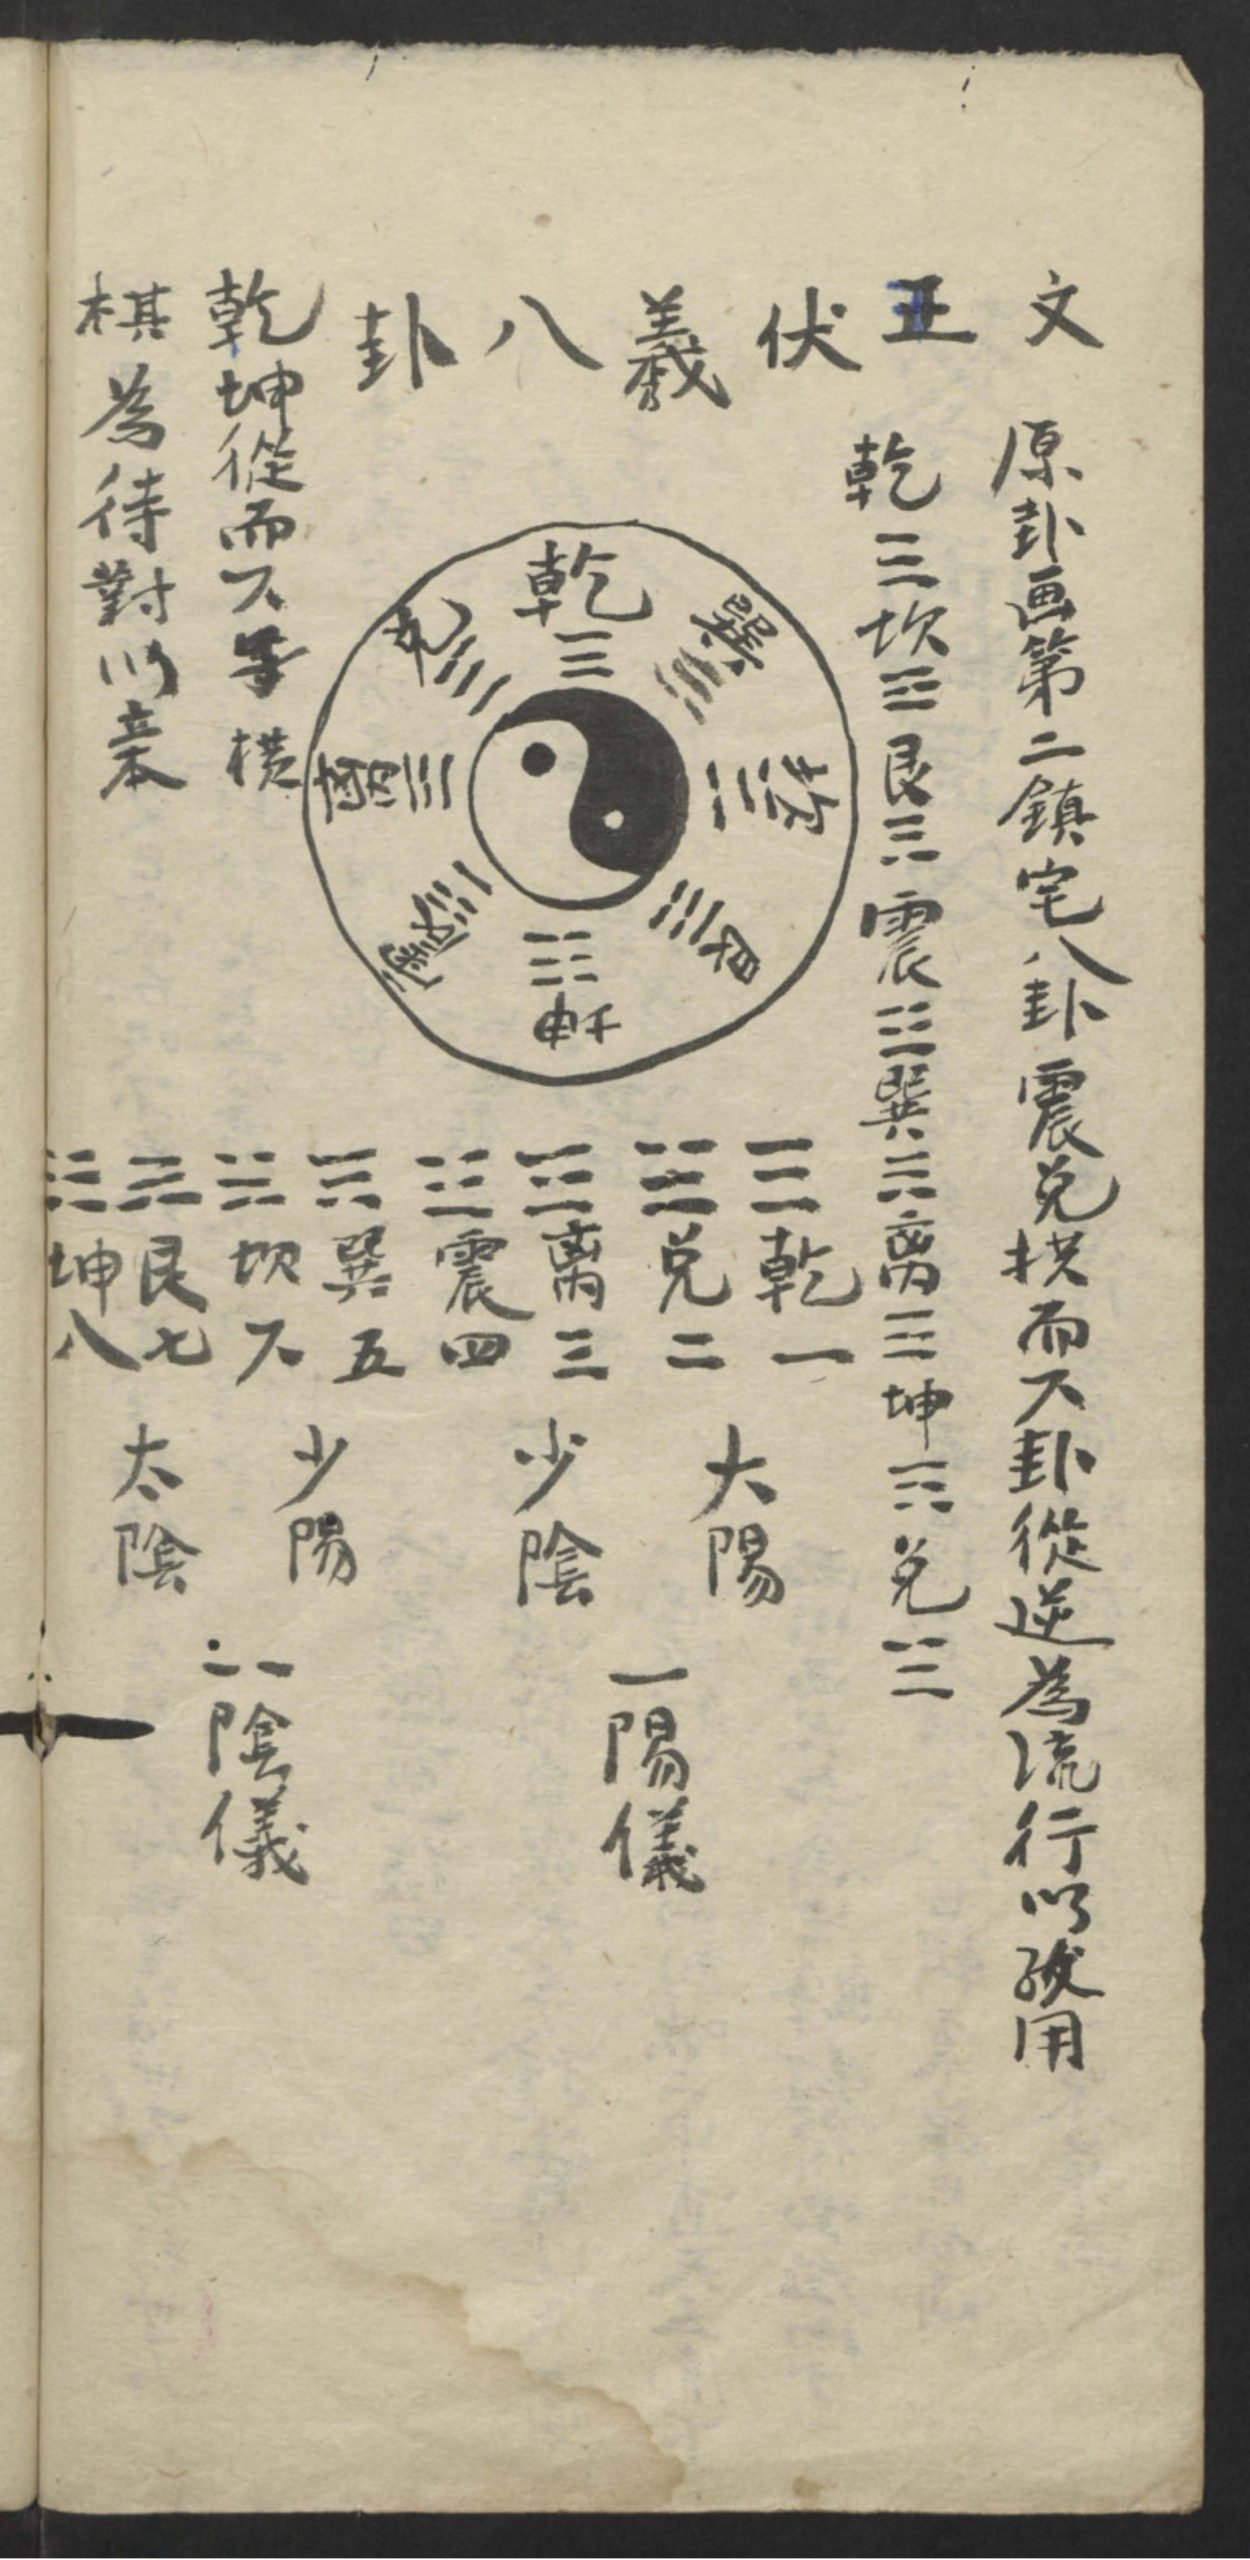 文
原卦画第二鎮宅八卦震兑横而六卦從逆為流行以致用
正
乾☰坎☵艮☶震☳巽☴离☲坤☷兑☱
伏羲八卦
乾
巽
坎
艮
坤
震
離
兑
乾坤從而六
橫
為待對以
☰乾一
☱兑二
☲离三
☳震四
☴巽五
☵坎六
☶艮七
☷坤八
大陽
少陰
少陽
太陰
一陽儀
陰儀